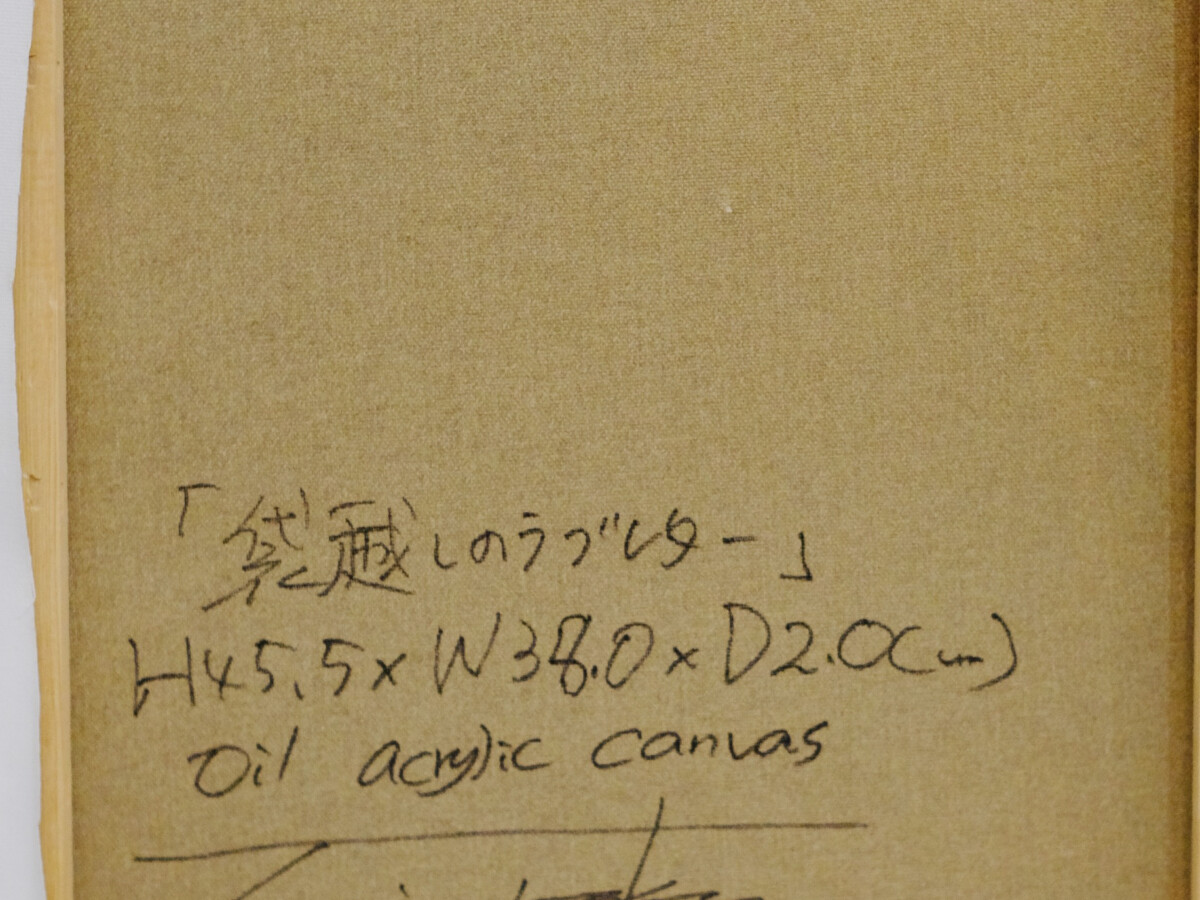 「袋越しのラブレター」
H45.5×W38.0×D2.0(cm)
Oil acrylic canvas